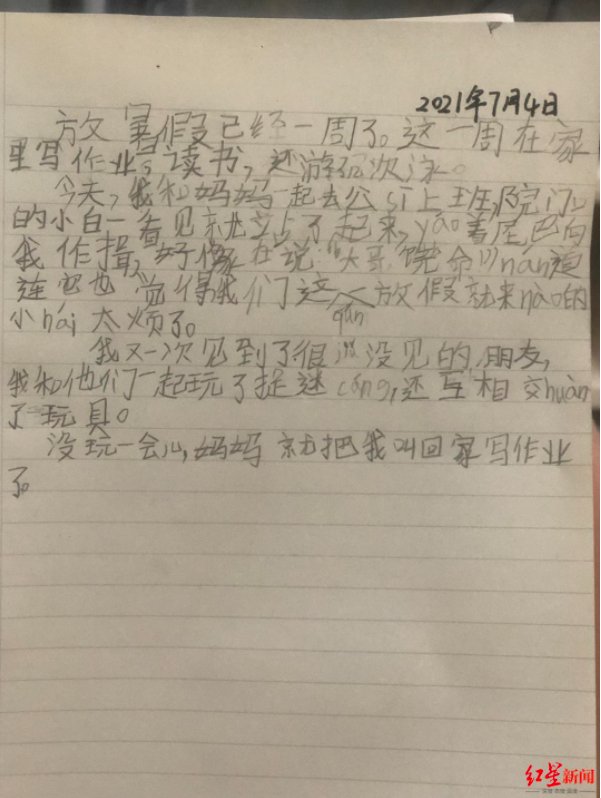 2021年7月4日
放暑假已经一周了。这一周在家
里写作业、读书，还游了几次泳。
今天，我和妈妈一起去公sī上班，院门口
的小白一看见就站了起来，yáo着尾巴向
我作揖，好像在说："大哥饶命！"nán道
连它也觉得我们这qún一放假就来nào的
小hái太烦了。
我又一次见到了很没见的朋友，
我和他们一起玩了捉迷cáng，还互相交huàn
了玩具。
没玩一会儿，妈妈就把我叫回家写作业
了。
红星新闻